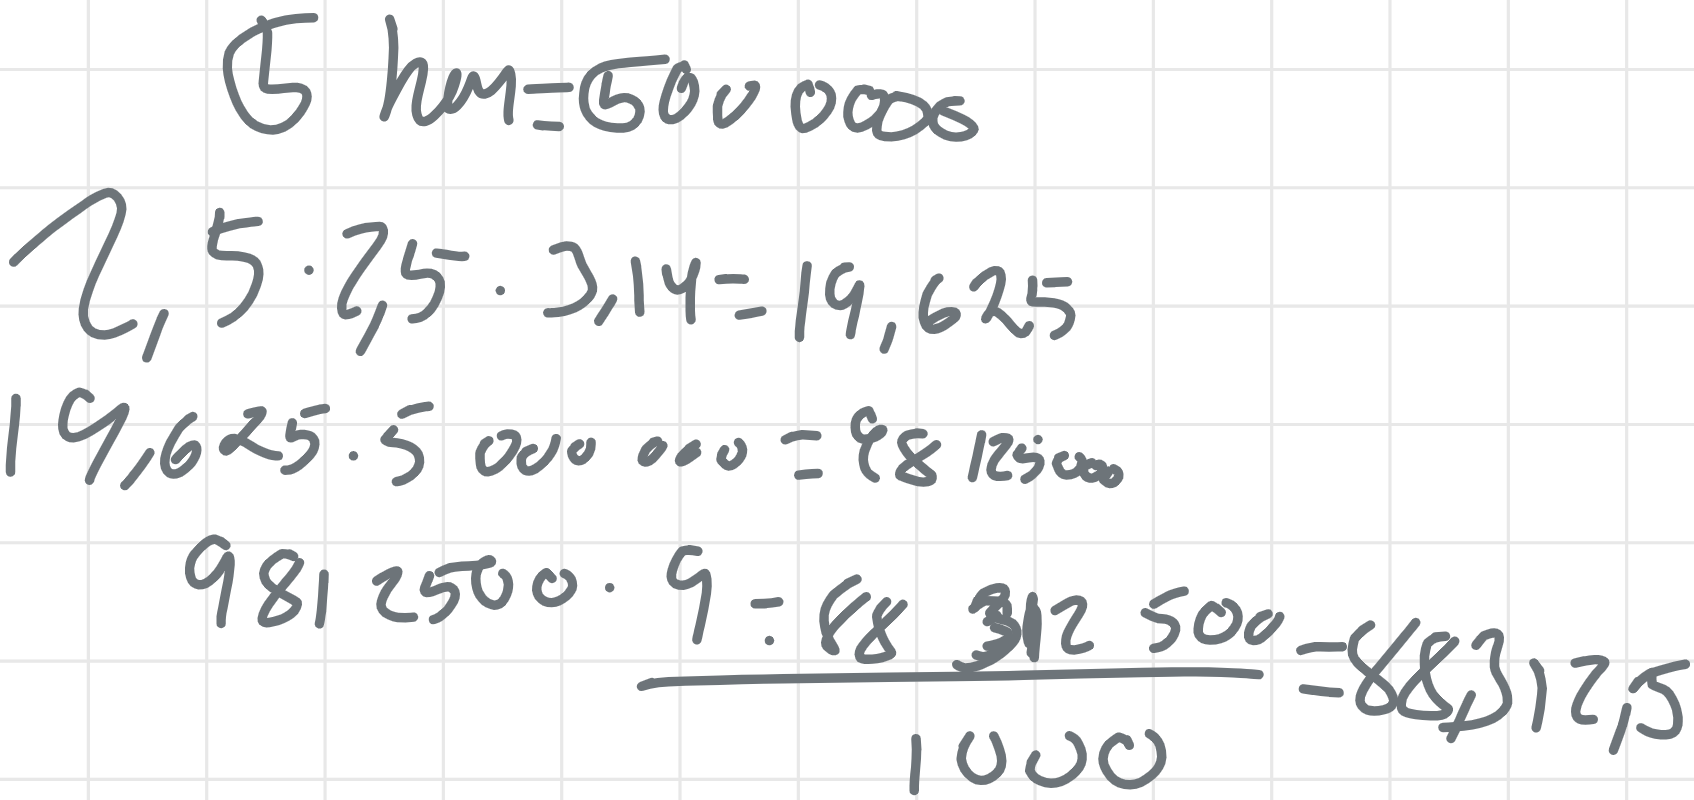 5 km=500 0000
2,5·2,5·3,14=19,625
19,625·5 000 000=98 125000
9812500·9=88 312 500=88,312,5
1000